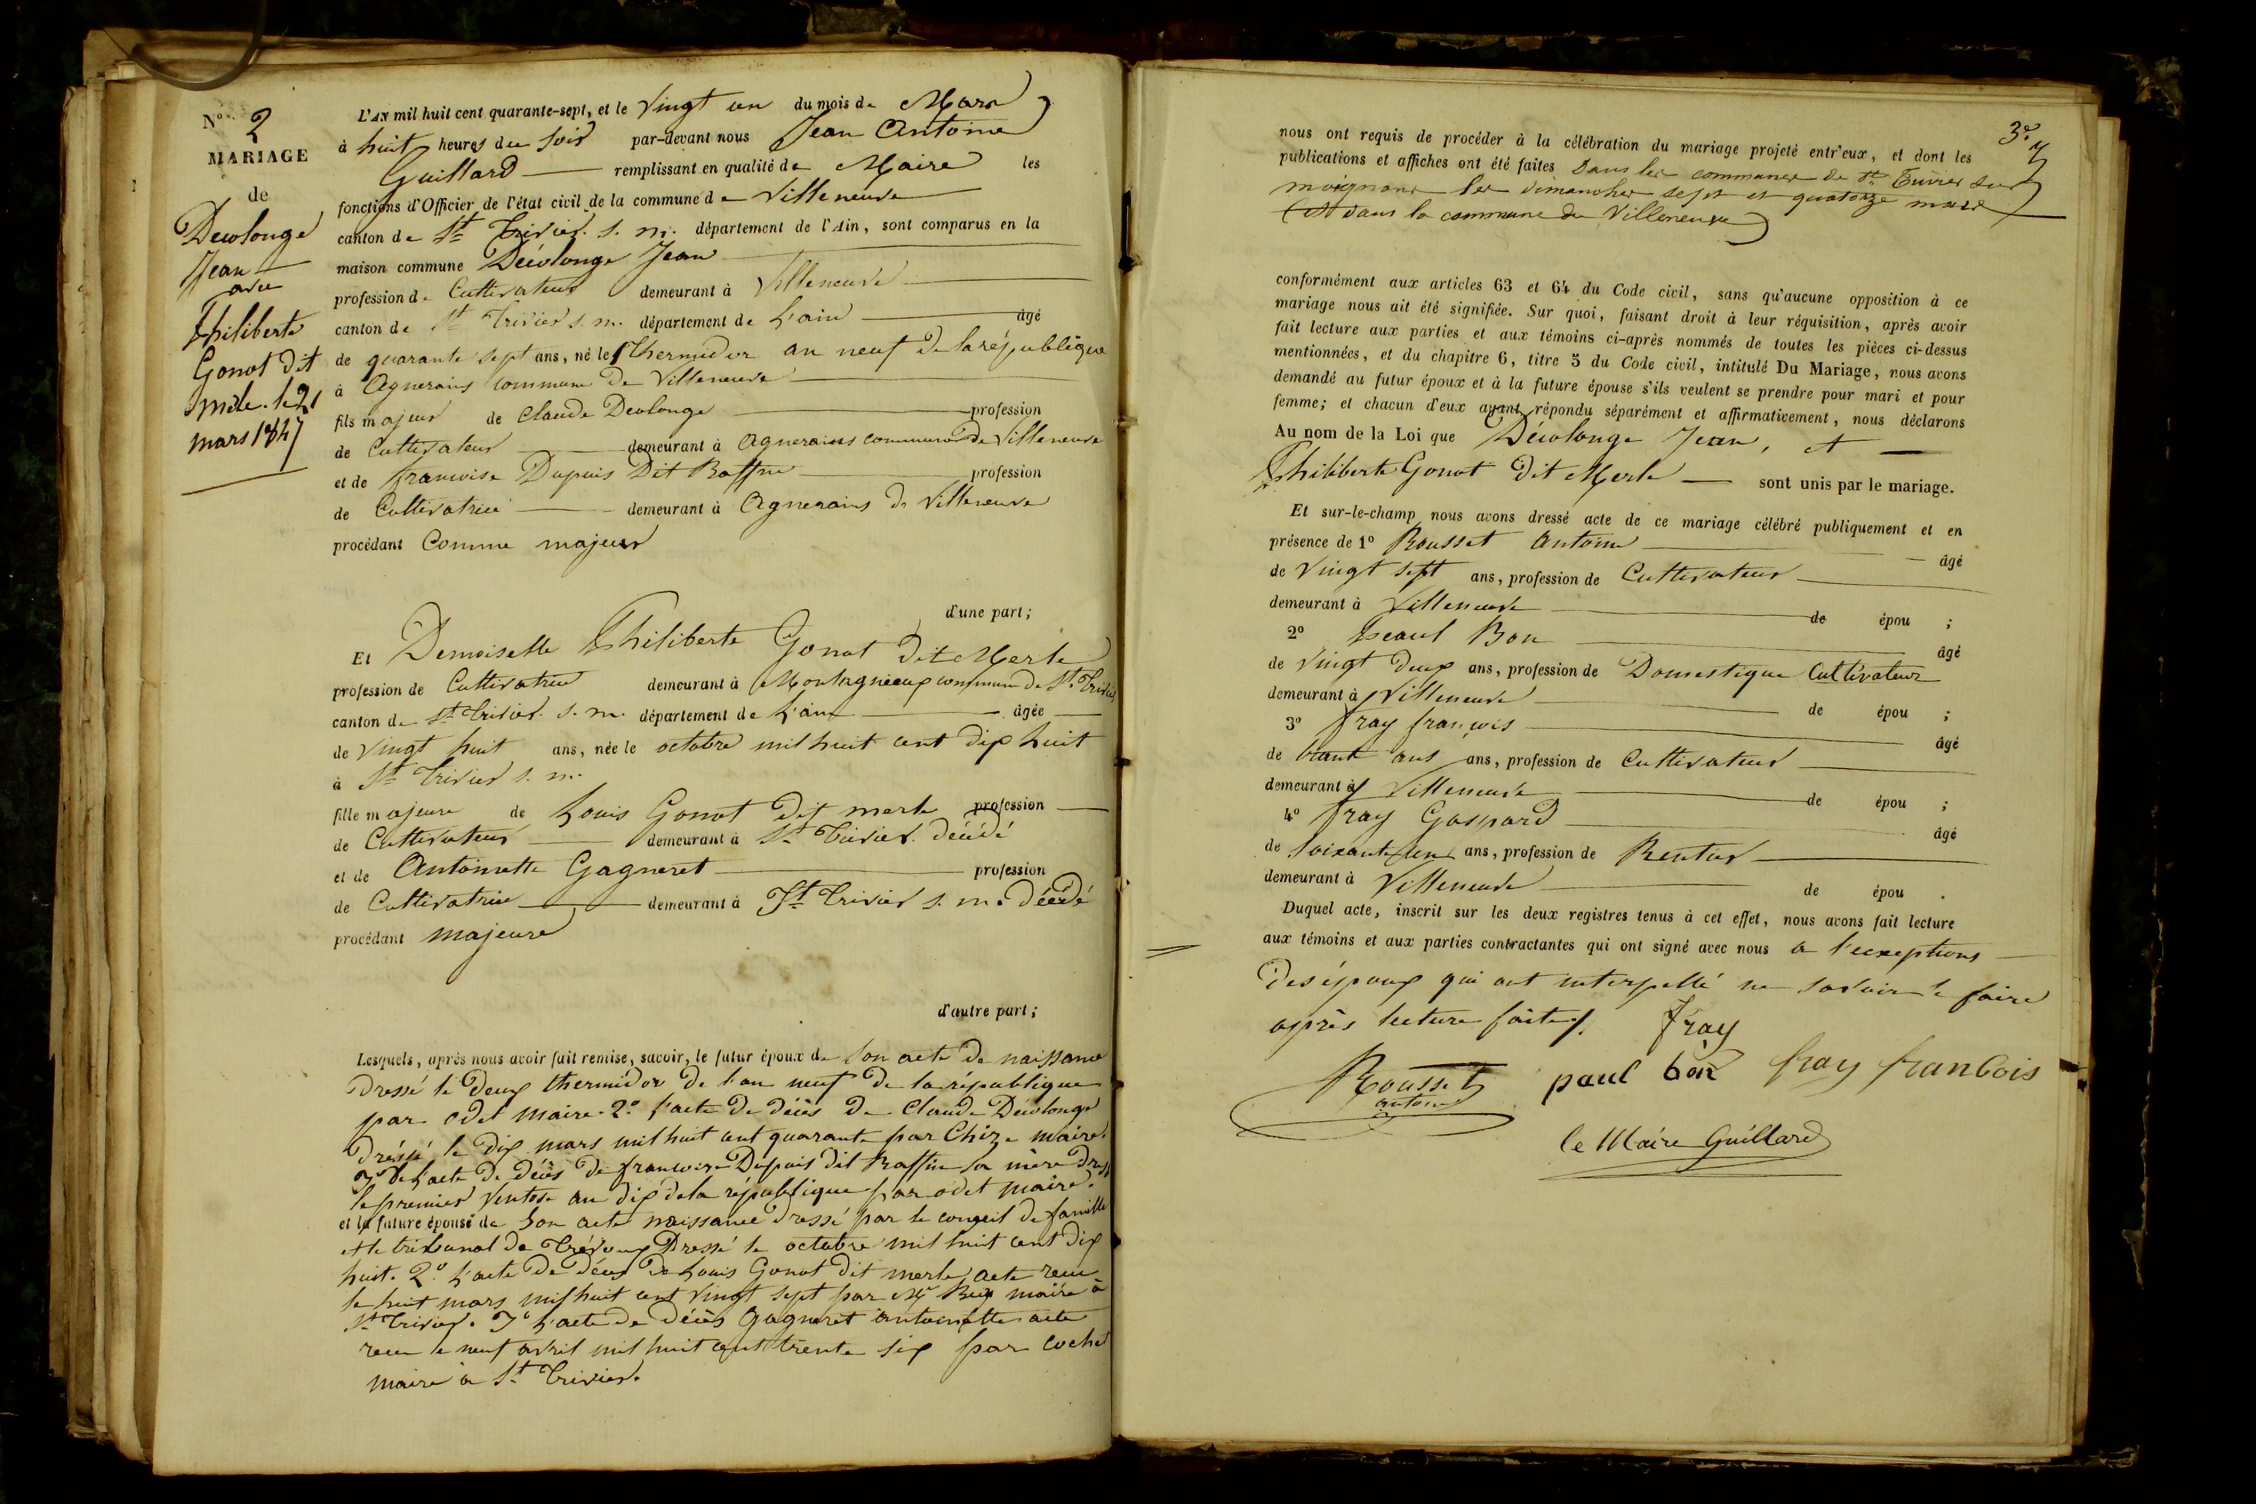 No. 2
MARIAGE
de
Decolonge
Jean
avec
Philiberte
Gonot dit
merle. le 21
mars 1847
L'AN mil huit cent quarante-sept, et le Vingt un du mois de Mars
à huit heures du Soir par-devant nous Jean Antoine
Guillard remplissant en qualité de Maire les
fonctions d'Officier de l'état civil de la commune de Villeneuve
canton de St Trivier s. m. département de l'Ain, sont comparus en la
maison commune Décolonge Jean
profession de Cultivateur demeurant à Villeneuve
canton de St Trivier s. m. département de L'ain âgé
de quarante sept ans, né le thermidor an neuf de la république
à Agnerains commune de Villeneuve
fils majeur de Claude Decolonge profession
de Cultivateur demeurant à Agnerains commune de Villeneuve
et de francoise Dupuis Dit Raffin profession
de Cultivatrice demeurant à Agnerains de Villeneuve
procédant Comme majeur
d'une part;
Et Demoiselle Philiberte Gonot Dit Merle
profession de Cultivatrice demeurant à Montagneux commune de St. Trivier
canton de St Trivier. s. m. département de L'ain âgée
de Vingt huit ans, née le octobre mil huit cent dix huit
à St Trivier s. m.
fille majeure de Louis Gonot Dit merle profession
de Cultivateur demeurant à St Trivier. décédé
et de Antoinette Gagneret profession
de Cultivatrice demeurant à St Trivier s. m. décédé
procédant majeure
d'autre part;
Lesquels, après nous avoir fait remise, savoir, le futur époux de Son acte de naissance
dressé le Deux thermidor de l'an neuf de la république
par odet maire. 2o l'acte de décès de Claude Décolonge
dréssé le dix mars mil huit cent quarante par Chize maire.
3o de l'acte de décès de francoise Dupuis dit Raffin sa mère dressé
le premier Ventose an dix de la république par odet maire.
et la future épouse de Son acte naissance dressé par le conseil de famille
et le tribunal de Trévoux Dressé le octobre mil huit cent dix
huit. 2o L'acte de décès de Louis Gonot dit merle acte recu
le huit mars mil huit cent vingt sept par Mr maire à
St Trivier. 3o L'acte de décès Gagneret antoinette acte
recu le neuf avril mil huit cent trente six par Cochet
maire à St. Trivier.
3e.
nous ont requis de procéder à la célébration du mariage projeté entr'eux, et dont les
publications et affiches ont été faites Dans les communes de St. Trivier sur
moignans les dimanches sept et quatorze mars
et dans la commune de Villeneuve
conformément aux articles 63 et 64 du Code civil, sans qu'aucune opposition à ce
mariage nous ait été signifiée. Sur quoi, faisant droit à leur réquisition, après avoir
fait lecture aux parties et aux témoins ci-après nommés de toutes les pièces ci-dessus
mentionnées, et du chapitre 6, titre 5 du Code civil, intitulé Du Mariage, nous avons
demandé au futur époux et à la future épouse s'ils veulent se prendre pour mari et pour
femme; et chacun d'eux ayant répondu séparément et affirmativement, nous déclarons
Au nom de la Loi que Décolonge Jean, et
Philiberte Gonot dit Merle sont unis par le mariage.
Et sur-le-champ nous avons dressé acte de ce mariage célébré publiquement et en
présence de 1o Rousset Antoine âgé
de Vingt sept ans, profession de Cultivateur
demeurant à Villeneuve de épou ;
2o Peaul Bon âgé
de Vingt deux ans, profession de Domestique Cultivateur
demeurant à Villeneuve de épou ;
3o fray françois âgé
de trante ans ans, profession de Cultivateur
demeurant à Villeneuve de épou ;
4o fray Gaspard âgé
de Soixante un ans, profession de Rentier
demeurant à Villeneuve de épou .
Duquel acte, inscrit sur les deux registres tenus à cet effet, nous avons fait lecture
aux témoins et aux parties contractantes qui ont signé avec nous a l'exceptions
Des époux qui ont interpellé ne savoir le faire
après lecture faite. fray
Rousset paul bon fray francois
antoine
le Maire Guillard